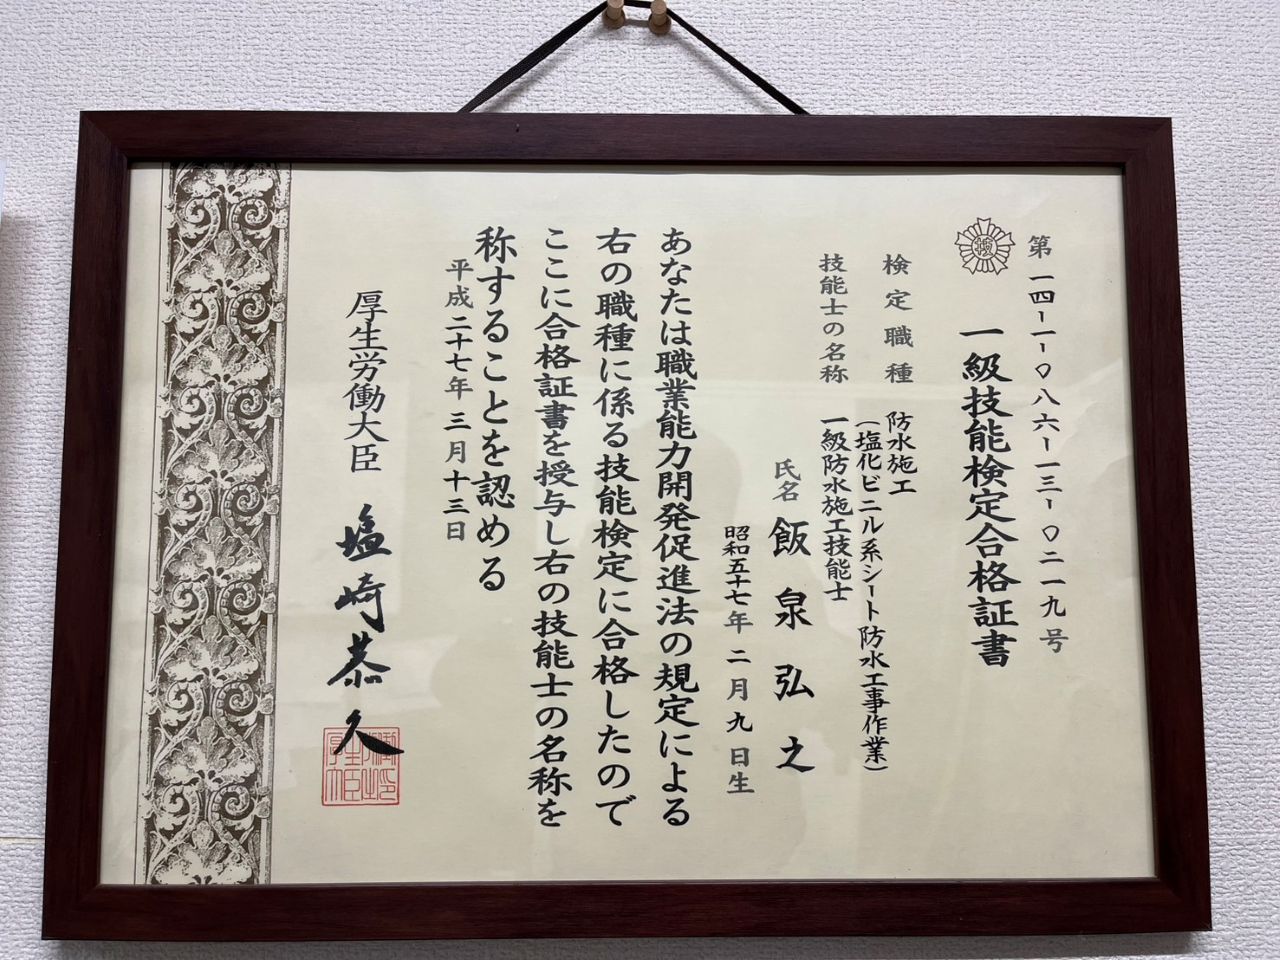 第一四-一-〇八六-一三-〇二一九号
一級技能検定合格証書
検定職種 防水施工
(塩化ビニル系シート防水工事作業)
技能士の名称 一級防水施工技能士
氏名 飯泉弘之
昭和五十七年二月九日生
あなたは職業能力開発促進法の規定による
右の職種に係る技能検定に合格したので
ここに合格証書を授与し右の技能士の名称を
称することを認める
平成二十七年三月十三日
厚生労働大臣 塩崎恭久